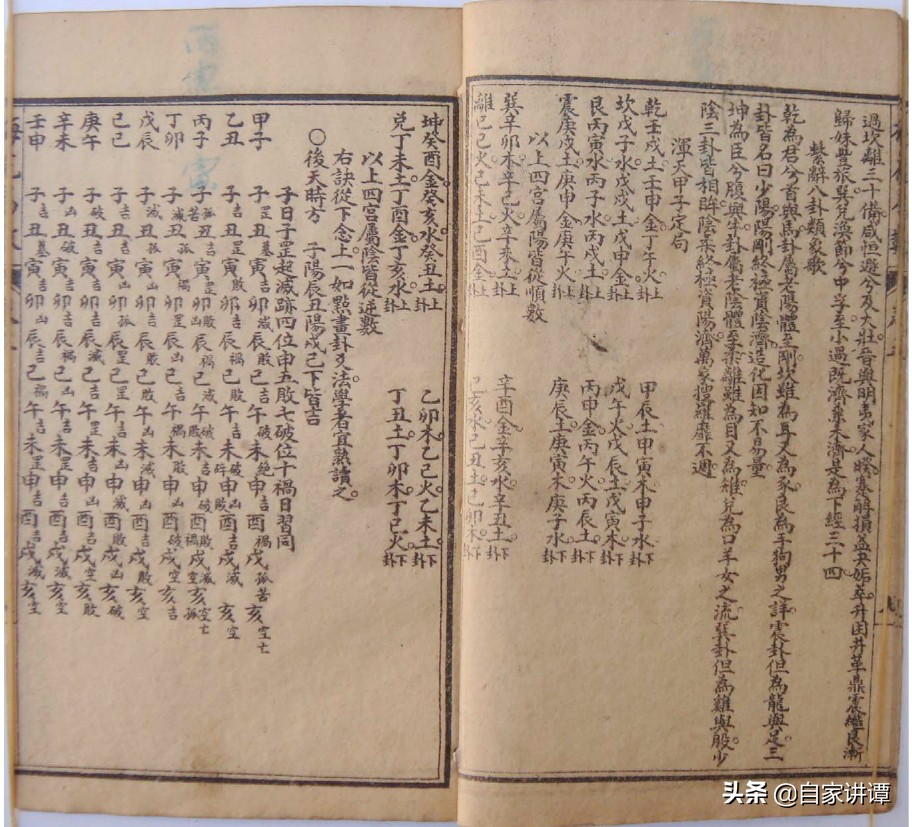 過坎離三十備咸恒遯兮及大壯晉與明夷家人睽蹇解損益夬姤萃升困井革鼎震繼艮漸
歸妹豐旅巽兌渙節兮中孚至小過既濟兼未濟是為下經三十四
繫辭八卦類象歌
乾為君兮首與馬卦屬老陽體至剛坎雖為耳又為豕艮為手狗男之詳震卦但為龍與足三
卦皆名曰少陽陽剛終極資陰濟造化因知不易量
坤為臣兮腹與牛卦屬老陰體至柔離雖為目又為雉兌為口羊女之流巽卦但為雞與股少
陰三卦皆相眸陰柔終極資陽濟萬象搜羅靡不週
渾天甲子定句
乾壬戌土壬申金丁午火上卦 甲辰土甲寅木甲子水下卦
坎戊子水戊戌土戊申金上卦 戊午火戊辰土戊寅木下卦
艮丙寅水丙子水丙戌土上卦 丙申金丙午火丙辰土下卦
震庚戌土庚申金庚午火上卦 庚辰土庚寅木庚子水下卦
以上四宮屬陽皆從順數
巽辛卯木辛巳火辛未土上卦 辛酉金辛亥水辛丑土下卦
離己巳火己未土己酉金上卦 己亥水己丑土己卯木下卦
坤癸酉金癸亥水癸丑土上卦 乙卯木乙己火乙未土下卦
兌丁未土丁酉金丁亥水上卦 丁丑土丁卯木丁己火下卦
以上四宮屬陰皆從逆數
右訣從下念上一如點畫卦爻法學者宜熟讀之
○後天時方 子陽辰丑陽戌己下皆言
子日子罡起滅跡四位申五敗七破位十禍日習同
甲子 子罡丑寅吉卯滅辰敗巳吉午破未申吉酉吉戌孤苦亥空亡
乙丑 子吉丑罡寅敗卯吉辰禍巳敗午吉未申酉吉戌滅亥空
丙子 子丑寅卯敗辰禍巳滅午未申破酉戌亥孤
丁卯 子滅丑寅禍卯罡辰凶巳吉午未敗申凶酉破戌空亥吉
戊辰 子滅丑吉寅凶卯吉辰敗巳吉午凶未滅申凶酉吉戌敗亥空
己巳 子吉丑吉寅吉卯孤辰罡巳禍午吉未凶申滅酉敗戌凶亥破
庚午 子破丑吉寅吉卯吉辰滅巳吉午罡未吉申凶酉吉戌空亥敗
辛未 子凶丑破寅吉卯吉辰禍巳凶午吉未罡申凶酉吉戌滅亥空
壬申 子吉丑墓寅卯吉辰吉巳禍午吉未罡申吉酉吉戌滅亥空
头条 @自家讲谭